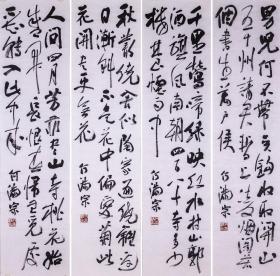 男儿何不带吴钩收取关山
五十州请君暂上凌烟阁若
个书生万户侯
千里莺啼绿映红水村山郭
酒旗风南朝四百八十寺多少
楼台烟雨中
秋丛绕舍似陶家遍绕篱边
日渐斜不是花中偏爱菊此
花开尽更无花
人间四月芳菲尽山寺桃花始
盛开长恨春归无觅处
不知转入此中来